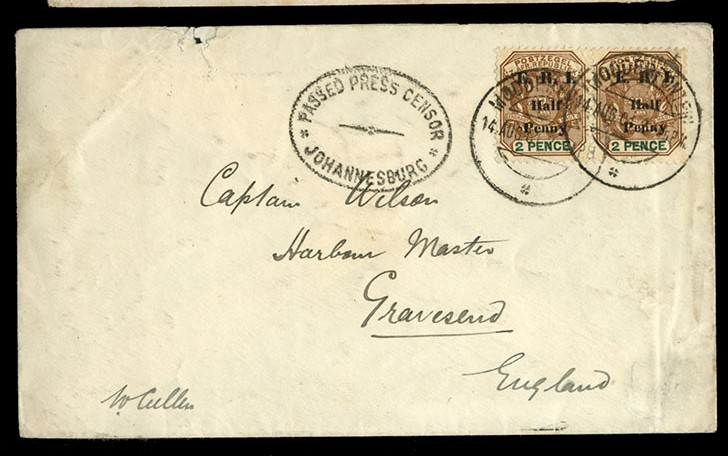 PASSED PRESS CENSOR
* JOHANNESBURG *
POSTZEGEL
E. R. I.
Half
Penny
2 PENCE
POSTZEGEL
E. R. I.
Half
Penny
2 PENCE
14 AUG
14 AUG
Captain Wilson
Harbour Master
Gravesend
England